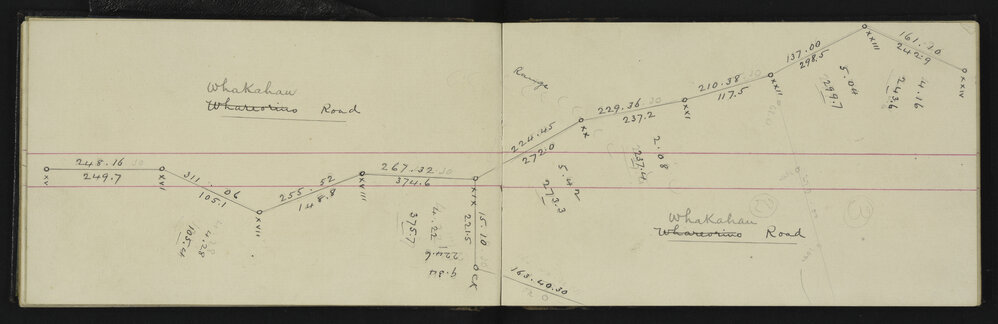 Whakahau
Whareorino Road
248.16 30
249.7
XV
XVI
311.06
105.1
4.28
105.4
XVII
255.52
148.8
XVIII
267.32 30
374.6
4.22
375.7
XIX
15.10
221.5
224.6
9.34
CK
Range
224.45
272.0
5.42
273.3
XX
229.36 30
237.2
2.08
237.4
XXI
210.38 30
117.5
XXII
137.00
298.5
5.04
299.7
XXIII
161.10
242.9
4.16
243.6
XXIV
Whakahau
Whareorino Road
163.40.30